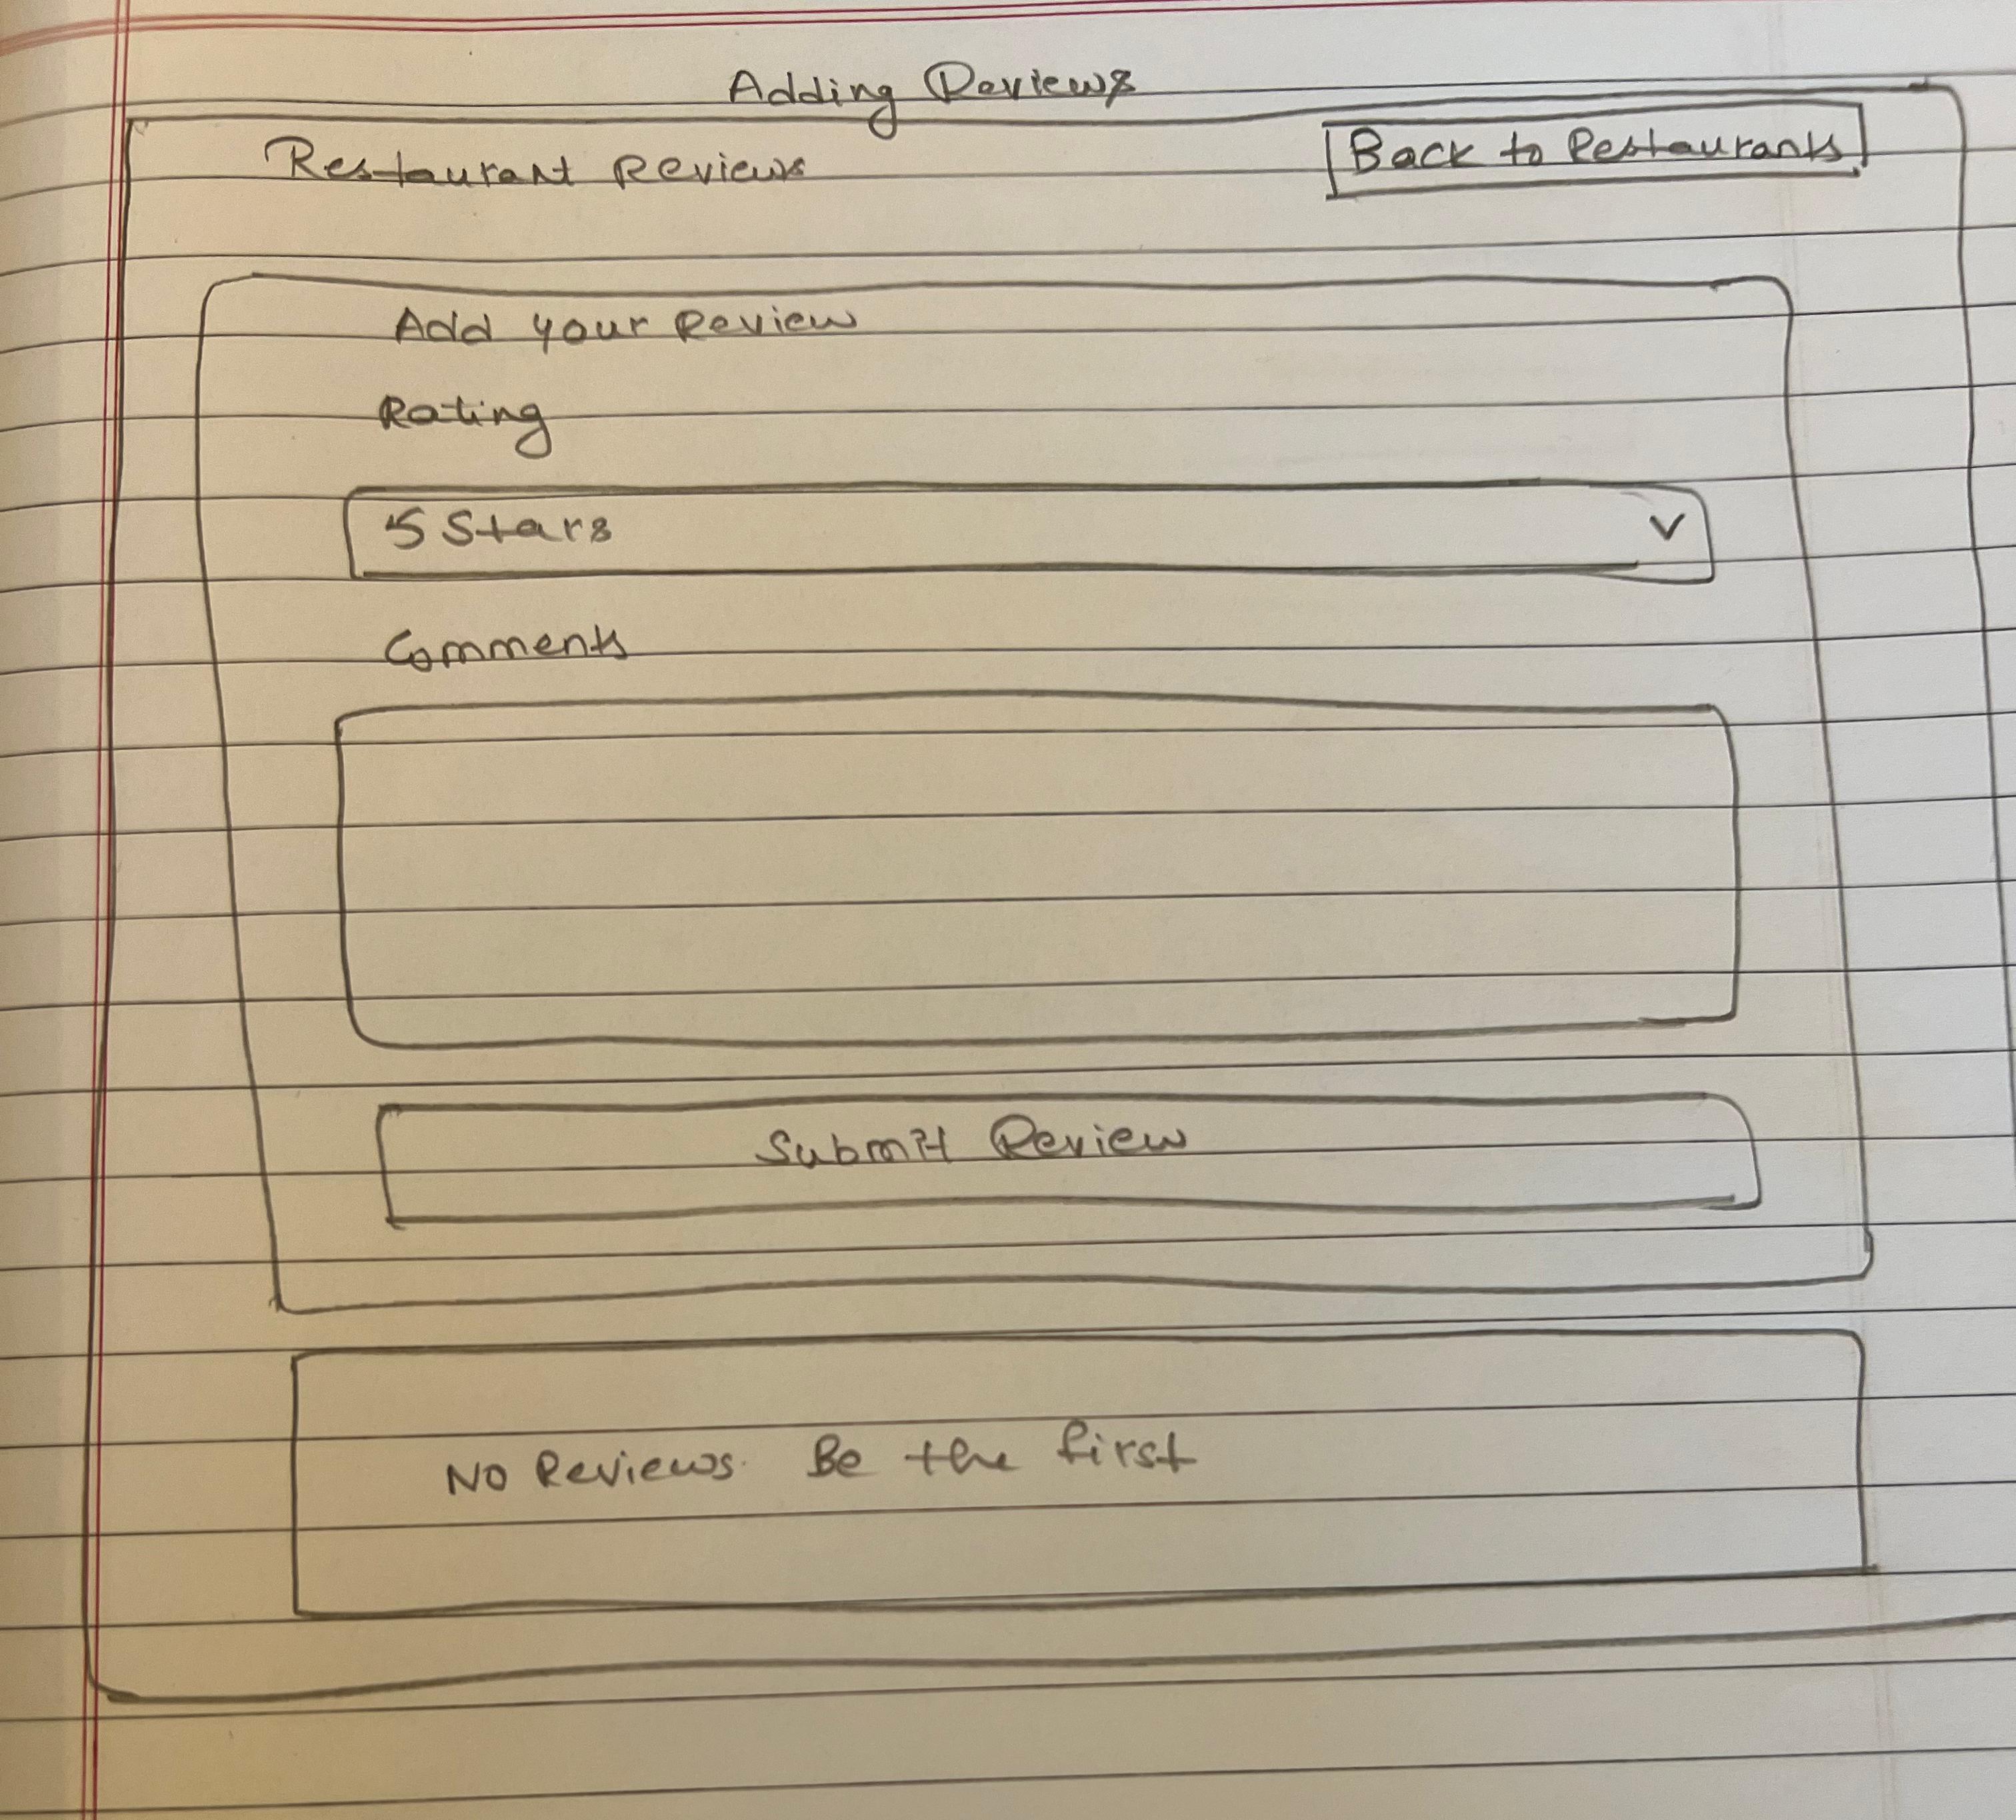 Adding Reviews
Restaurant Reviews
Back to Restaurants
Add your Review
Rating
5 Stars
Comments
Submit Review
No Reviews. Be the first